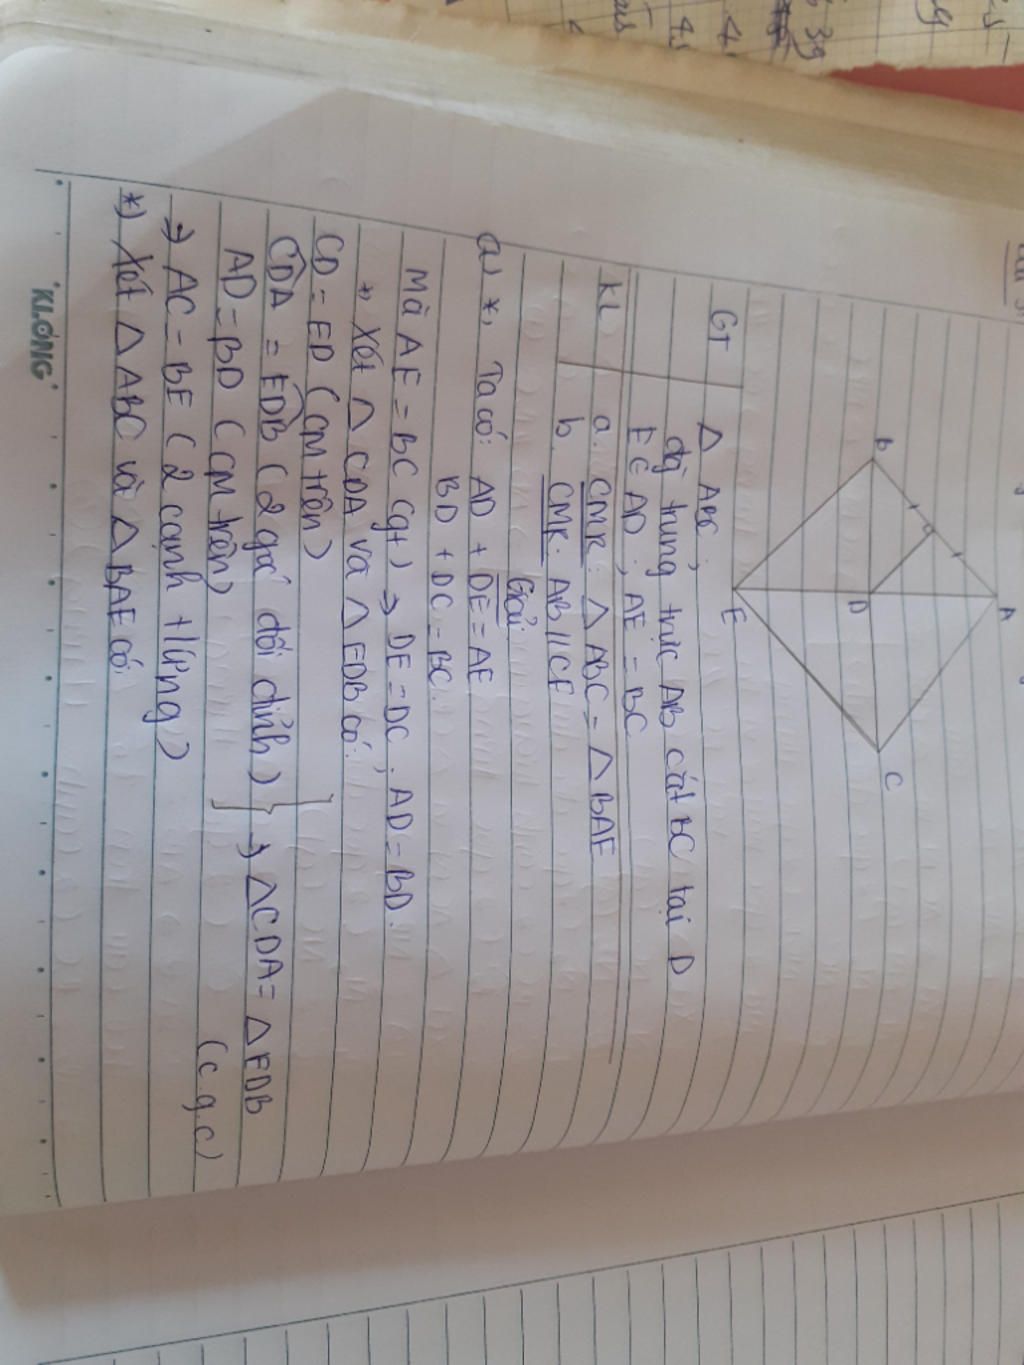 A
B
D
C
E
GT
△ ABC ;
đg trung trực AB cắt BC tại D
E ∈ AD ; AE = BC
KL
a. CMR : △ ABC = △ BAE
b. CMR. AB // CE
Giải
a) *, Ta có: AD + DE = AE
BD + DC = BC.
Mà AE = BC (gt) ⇒ DE = DC ; AD = BD.
*) Xét △ CDA và △ EDB có:
CD = ED (cm trên)
CDA = EDB (2 góc đối đỉnh) } ⇒ △CDA = △ EDB
AD = BD (cm trên) (c.g.c)
⇒ AC = BE (2 cạnh tương)
*) Xét △ ABC và △ BAE có
KLONG